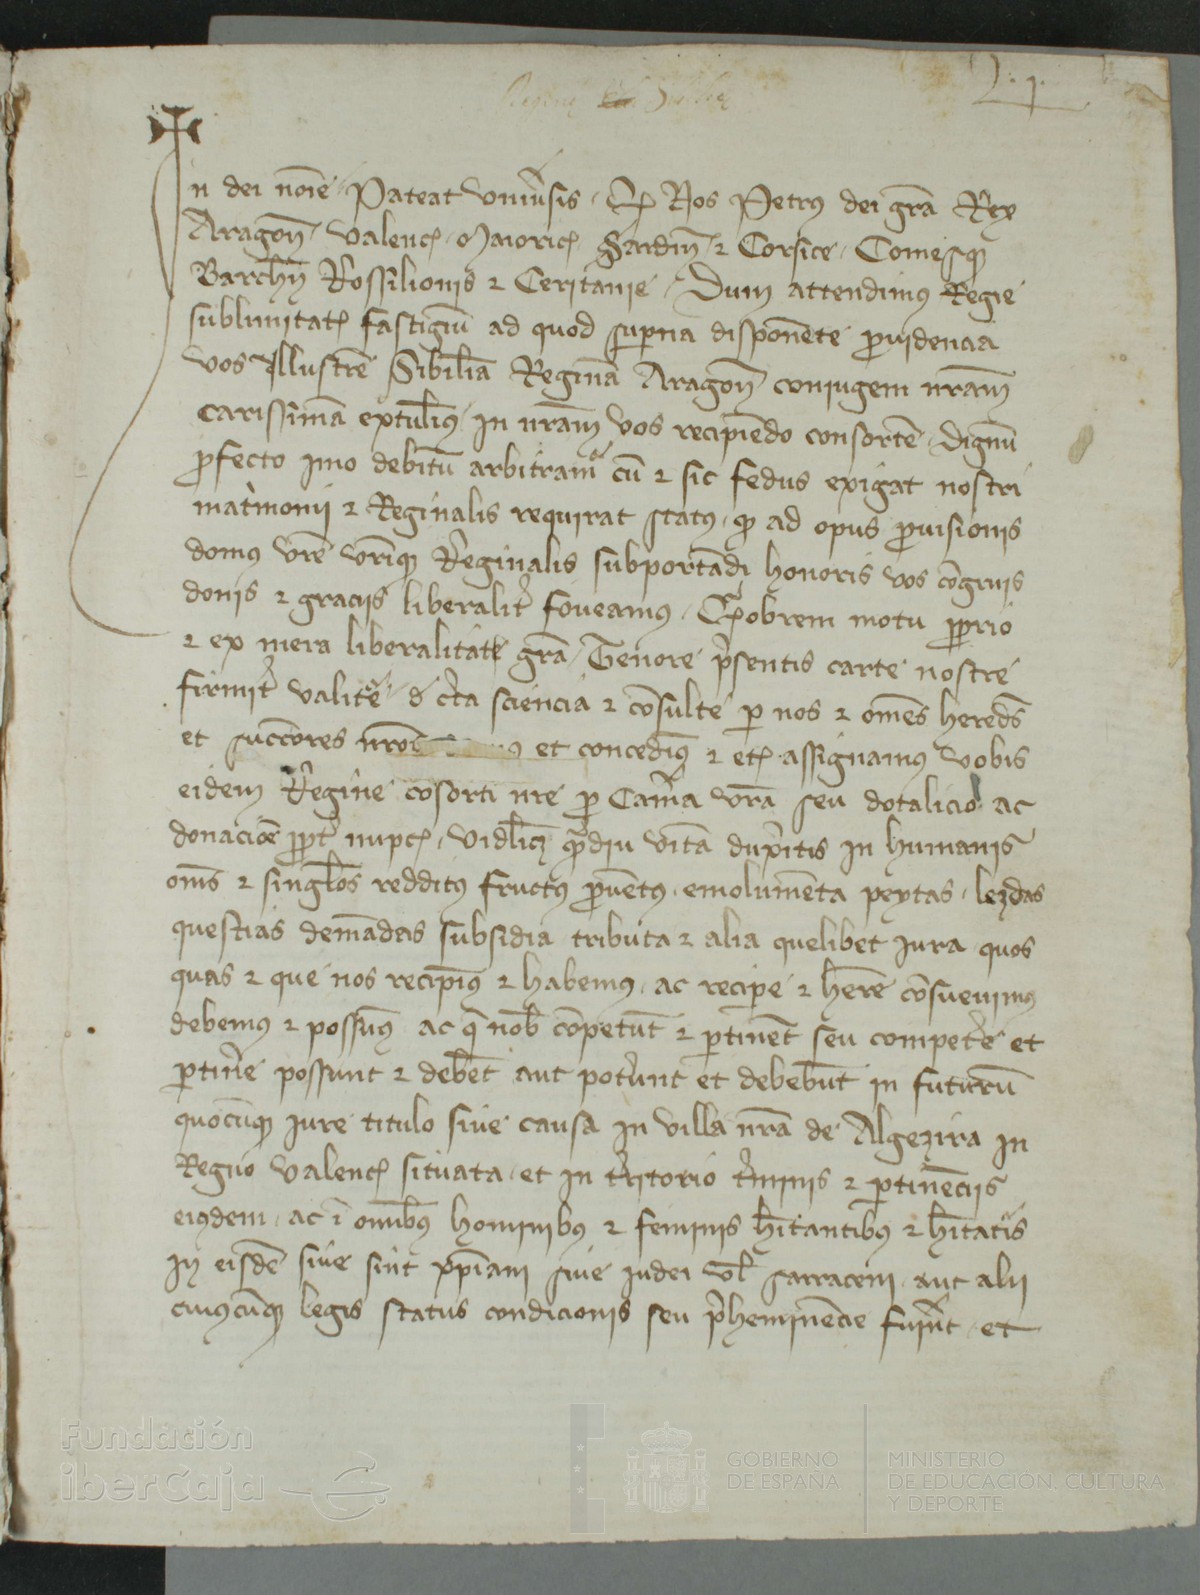 In dei noīe Pateat univ̄sis Qđ Nos Petrus dei grā Rex
Aragon̄ Valenc̄ Maioric̄ Sardin̄ ⁊ Corsice Comesq̨
Barchn̄ Rossilionis ⁊ Ceritanie Dum attendimus Regie
sublimitat̄ fastigiū ad quod supna disponente pvidencia
vos Illustrē Sibiliā Reginā Aragon̄ coniugem nrām
carissimā extulim̄ in nrām vos recipiendo consortē dignū
pfecto imo debitū arbitram̄ cū ⁊ sic fedus exigat nostri
mat̄monii ⁊ Reginalis requirat status qđ ad opus pvisionis
domus vrē vrīq̨ Reginalis subportādi honoris vos cōgruis
donis ⁊ graciis liberalit̄ foveamus Quobrem motu pprio
⁊ ex mera liberalitate grā Tenore p̄sentis carte nostre
firmit̄ valitē đ c̄ta sciencia ⁊ cōsulte p nos ⁊ omēs heredes
et succōres nrōs et concedim̄ ⁊ et̄ assignamus vobis
eidem Regine cōsorti nrē p Cam̄a vrā seu dotalicio ac
donaciōe ppt̄ nupc̄ vidl̄icȝ q̄diu vitā duxitis in humanis
om̄s ⁊ singl̄os redditus fructus pvētus emolumēta peytas lezdas
questias demādas subsidia tributa ⁊ alia quelibet iura quos
quas ⁊ que nos recipim̄ ⁊ habemus ac recipe ⁊ hēre cōsuevimus
debemus ⁊ possum̄ ac q̄ nob̄ cōpetūt ⁊ ptinēt seu compete et
ptin̄e possunt ⁊ debēt aut pot̄unt et debebūt in futurū
quocūq̨ iure titulo sive causa in villa nrā de Algezira in
Regno Valenc̄ situata et in t̄ritorio t̄minis ⁊ ptinēciis
eiusdem ac ī omībus hominibus ⁊ feminis hītantibus ⁊ hītatīs
in eisdē sive sint xp̄iani sive iudei vl̄ sarraceni aut alii
cuiuscūq̨ legis status condicionis seu p̄heminēcie fuīnt et
Fundación
iberCaja
GOBIERNO
DE ESPAÑA
MINISTERIO
DE EDUCACIÓN, CULTURA
Y DEPORTE